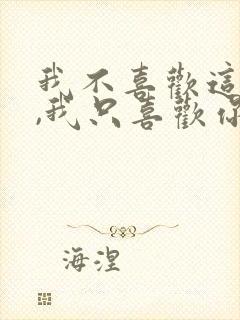 我不喜歡這
,我只喜歡你
海涅